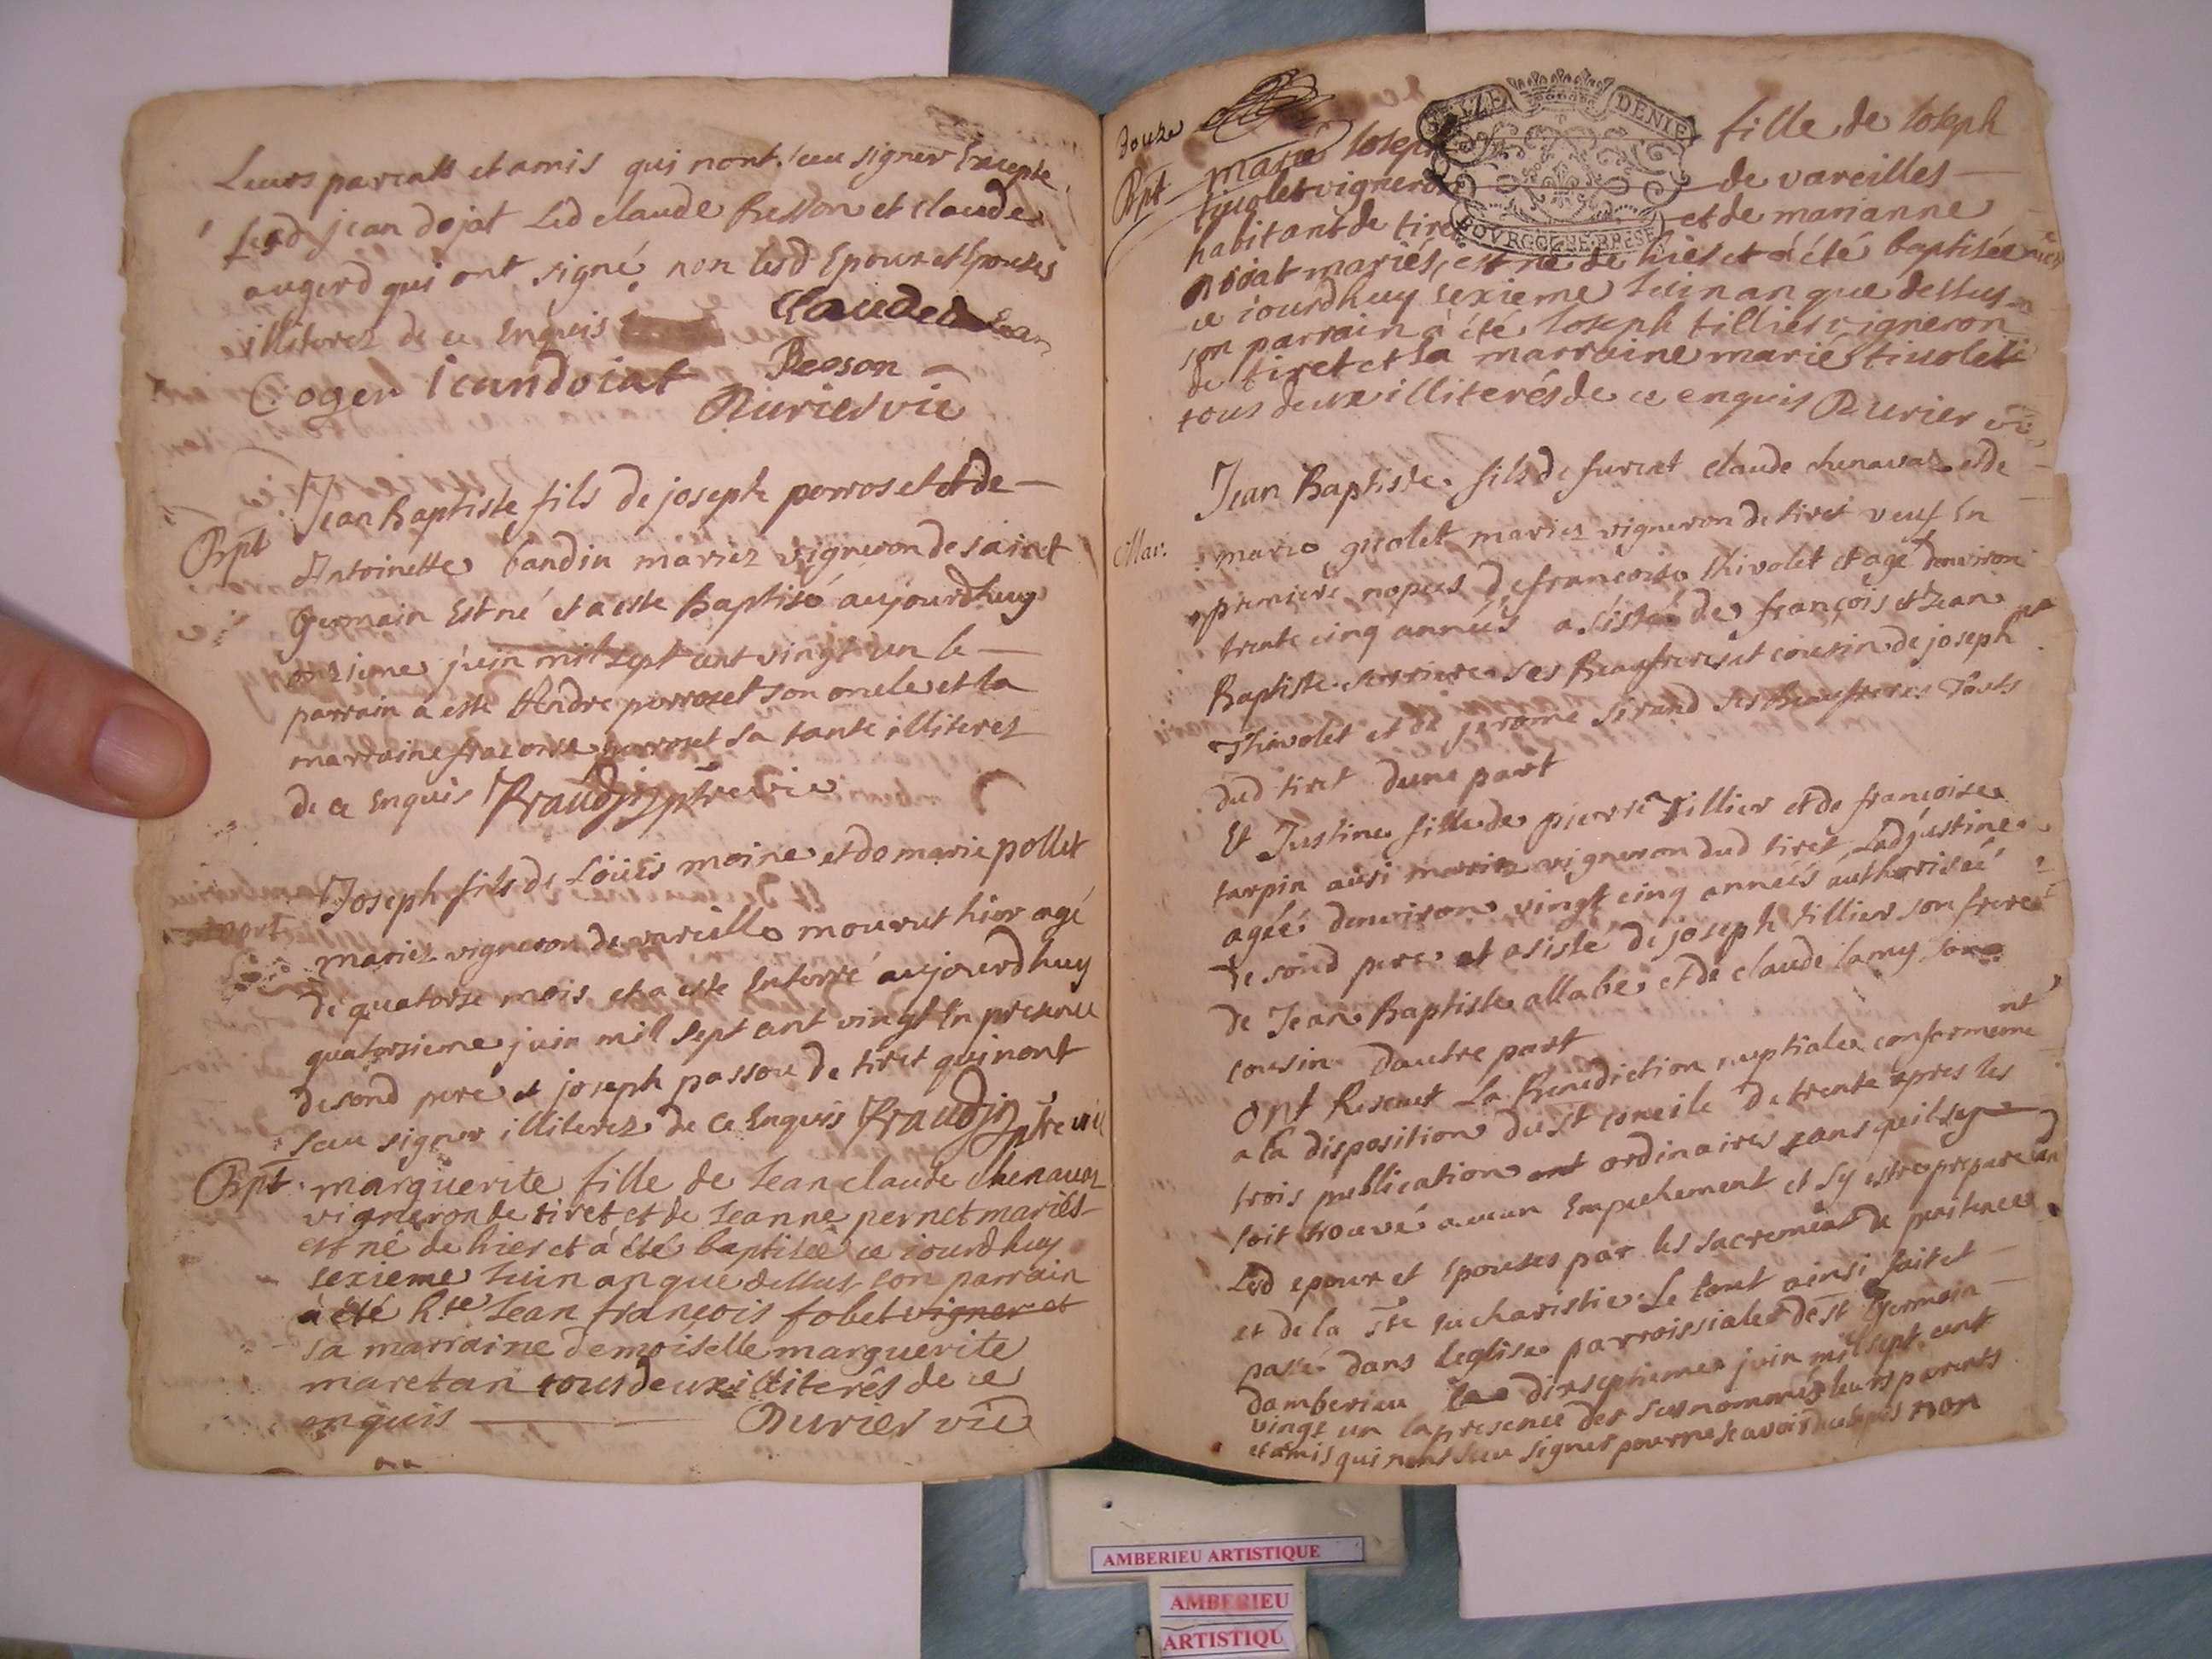 Leurs parents et amis qui nont sceu signer Excepte
Led jean dojat Led claude Besson et claude
augerd qui ont signé non lesd Epoux et Epouses
illiterez de ce Enquis
Claude
C oger Jcandoiat Besson
Rurier vic
Bpt
Jean Baptiste fils de joseph perroset et de
Antoinette bandin mariez vigneron de saint
Germain Est né et a este Baptisé aujourdhuy
onzieme juin mil sept cent vingt un le
parrain a este Andre perroset son oncle et la
marraine francoise perroset sa tante illiterez
de ce Enquis Braudjn ptre vic
mort
Joseph fils de Löuis moine et de marie pollet
mariez vigneron de vareille mourut hier agé
de quatorse mois et a este Enterré aujourdhuy
quatorsieme juin mil sept cent vingt En presence
de sond pere et joseph passou de tiret qui nont
sceu signer illiterez de ce Enquis Braudjn ptre vic
Bpt
marguerite fille de Jean claude chenavaz
vigneron de tiret et de Jeanne pernet mariés
est né de hier et à été baptisée ce iourdhuy
sexieme Juin an que dessus son parrain
à été hte Jean françois fobet vigner et
sa marraine demoiselle marguerite
maretan tous deux illiterés de ce
enquis Rurier vic
Douze
SEIZE DENIE
BOVRGOGNE BRESSE
Bpt
marie Joseph fille de Joseph
tiuolet vigneron de vareilles
habitant de tiret et de marianne
dojat mariés, est né de hier et à été baptisée
ce iourdhuy sexieme Juin an que dessus
son parrain à été Joseph tillier vigneron
de tiret et sa marraine marie tiuolet
tous deux illiterés de ce enquis Rurier vic
Mar.
Jean Baptiste fils de furent claude chenavaz et de
marie giolet mariez vigneron de tiret veuf En
premiere nopces de francoise thivolet et agé denviron
trente cinq annéés asisté de françois et Jean
Baptiste serriere ses Beaufreres et cousin de joseph
Thivolet et de jerome sirand ses Beaufreres touts
dud tiret dune part
Et Justine fille de pierre Tillier et de francoise
tarpin ausi mariez vigneron dud tiret Lad justine
agéé denviron vingt cinq annéés authorisée
de sond pere et asisté de joseph tillier son frere
de Jean Baptiste allabe et de claude lamy son
cousin dautre part
Ont Receut La Benediction nuptiale conformement
a la disposition du st concile de trente apres les
trois publication ordinaires sans qeil sy
soit trouvé aucun Empechement et sy estre preparé
Lesd epoux et Epouses par les sacrements de penitence
et de la ste Eucharistie. Le tout ainsi fait et
passé dans leglise parroissiale de st Germain
damberieu dixseptieme juin mil sept cent
vingt un En presence des susnommés leurs parents
et amis qui nont sceu signer pour ne scavoir non
AMBERIEU ARTISTIQUE
AMBERIEU
ARTISTIQU